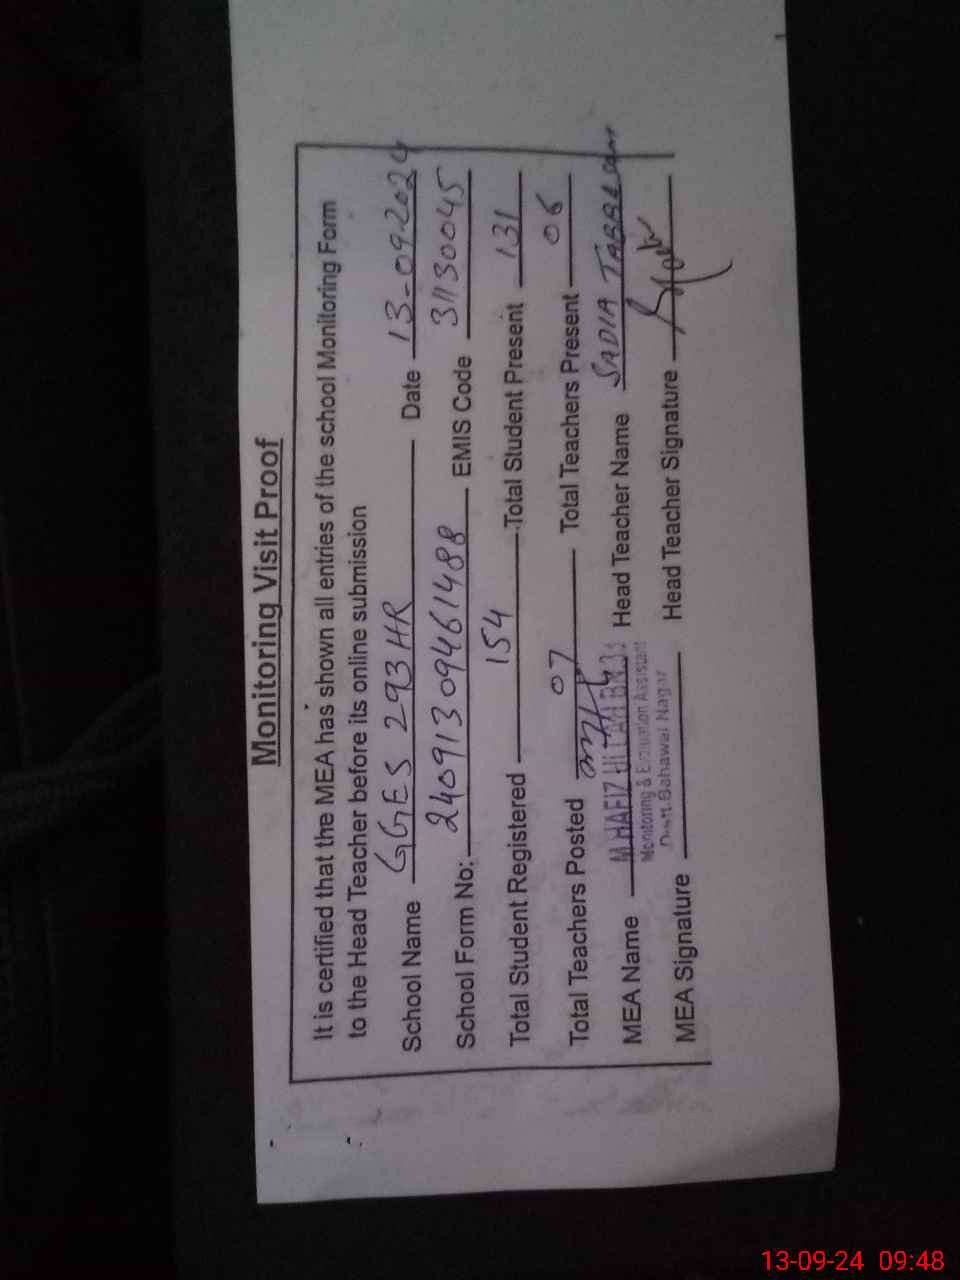 Monitoring Visit Proof
It is certified that the MEA has shown all entries of the school Monitoring Form
to the Head Teacher before its online submission
School Name GGES 293HR Date 13-09-2024
School Form No: 2409130946 1488 EMIS Code 31130045
Total Student Registered 154 Total Student Present 131
Total Teachers Posted 07 Total Teachers Present 06
MEA Name M HAFIZ Head Teacher Name SADIA
Monitoring & Evaluation Assistant
Bahawal Nagar
MEA Signature Head Teacher Signature
13-09-24 09:48